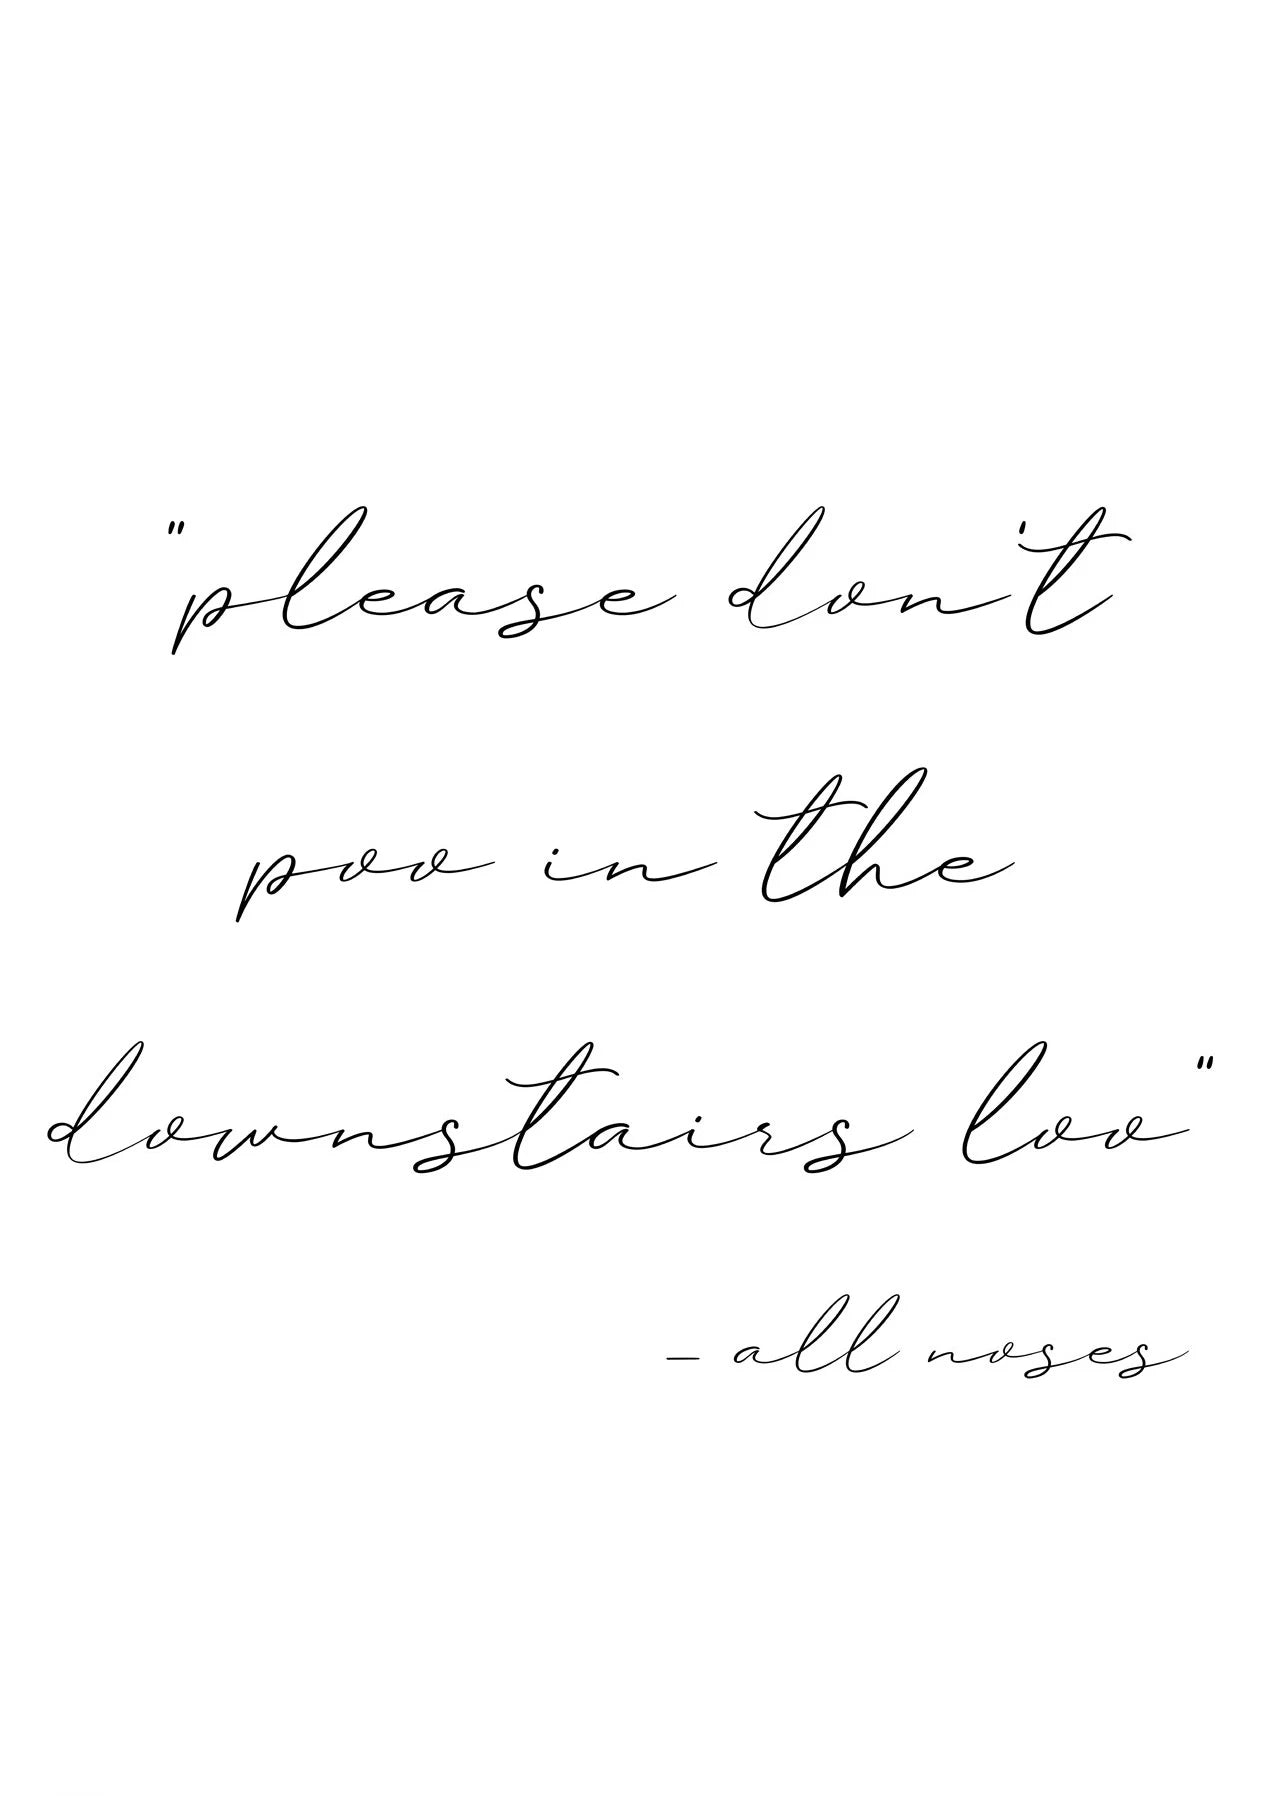 "please don't
poo in the
downstairs loo"
- all noses